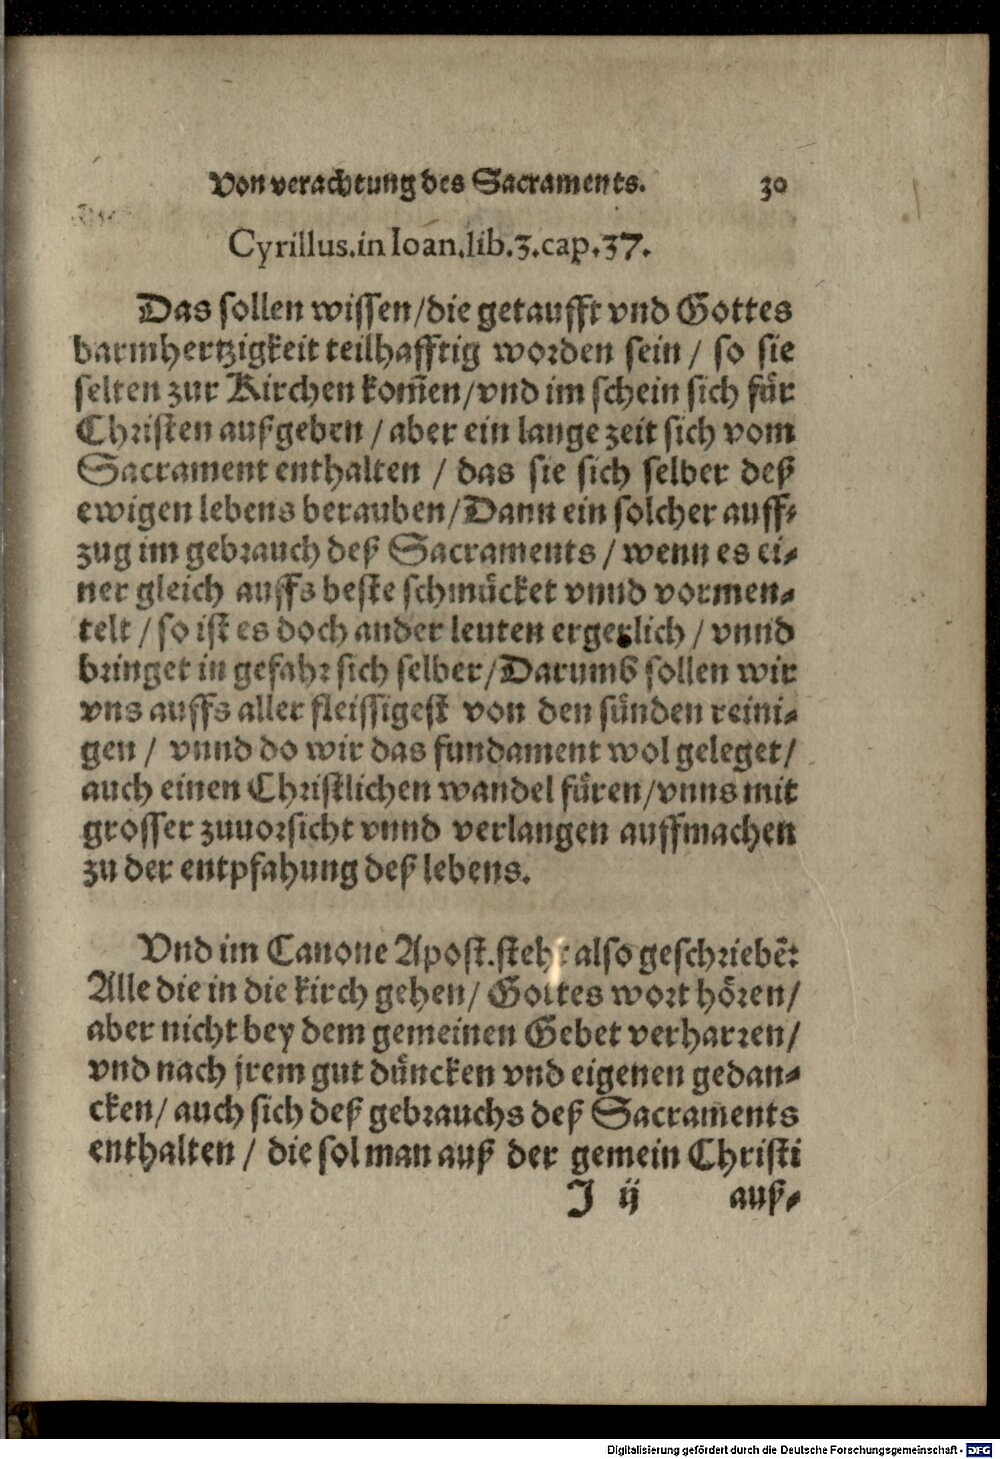 Von verachtung des Sacraments. 30
Cyrillus.in Ioan.lib.3.cap.37.
Das sollen wissen/die getaufft vnd Gottes
barmhertzigkeit teilhafftig worden sein / so sie
selten zur Kirchen kom̃en/vnd im schein sich fuͤr
Christen außgeben / aber ein lange zeit sich vom
Sacrament enthalten / das sie sich selber deß
ewigen lebens berauben/Dann ein solcher auff-
zug im gebrauch deß Sacraments / wenn es ei-
ner gleich auffs beste schmuͤcket vnnd vormen-
telt / so ist es doch ander leuten ergerlich / vnnd
bringet in gefahr sich selber/Darumb sollen wir
vns auffs aller fleissigest von den suͤnden reini-
gen / vnnd do wir das fundament wol geleget/
auch einen Christlichen wandel fuͤren/vnns mit
grosser zuuorsicht vnnd verlangen auffmachen
zu der entpfahung deß lebens.
Vnd im Canone Apost.steht also geschriebẽ:
Alle die in die kirch gehen/ Gottes wort hoͤren/
aber nicht bey dem gemeinen Gebet verharren/
vnd nach jrem gut duͤncken vnd eigenen gedan-
cken/ auch sich deß gebrauchs deß Sacraments
enthalten / die sol man auß der gemein Christi
J ij auß-
Digitalisierung gefördert durch die Deutsche Forschungsgemeinschaft - DFG